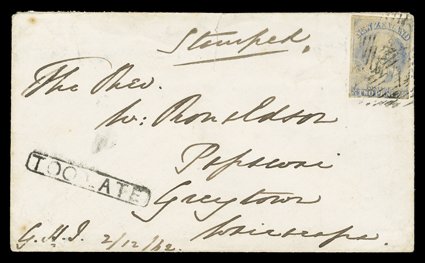 Stamped
NEW ZEALAND
The Rev.
W: Ronaldson
Papawai
TOO LATE
Greytown
Wairarapa.
G.H.I. 2/12/62